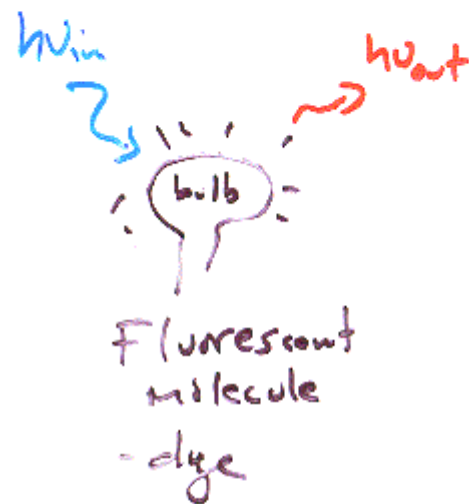 hνin
hνout
bulb
Fluorescent
molecule
- dye